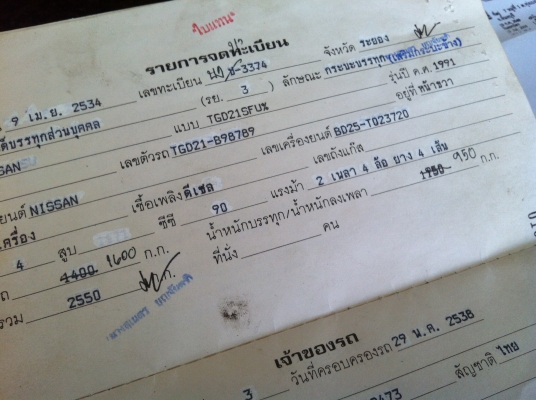 "ใบแทน"
รายการจดทะเบียน
9 เม.ย. 2534 เลขทะเบียน 8-3374 จังหวัด ระยอง
บรรทุกส่วนบุคคล (รย. 3 ) ลักษณะ กระบะบรรทุก
แบบ TGD21SFU% รุ่นปี ค.ศ. 1991
เลขตัวรถ TGD21-B98789 เลขเครื่องยนต์ BD25-T023720 อยู่ที่ หน้าขวา
ยนต์ NISSAN เชื้อเพลิง ดีเซล เลขถังแก๊ส
เครื่อง
4 สูบ ซีซี 90 แรงม้า 2 เพลา 4 ล้อ ยาง 4 เส้น
1400 1600 ก.ก. น้ำหนักบรรทุก/น้ำหนักลงเพลา 1150 950 ก.ก.
รวม 2550 ก. ที่นั่ง คน
เจ้าของรถ
3 วันที่ครอบครองรถ 29 พ.ค. 2538
สัญชาติ ไทย